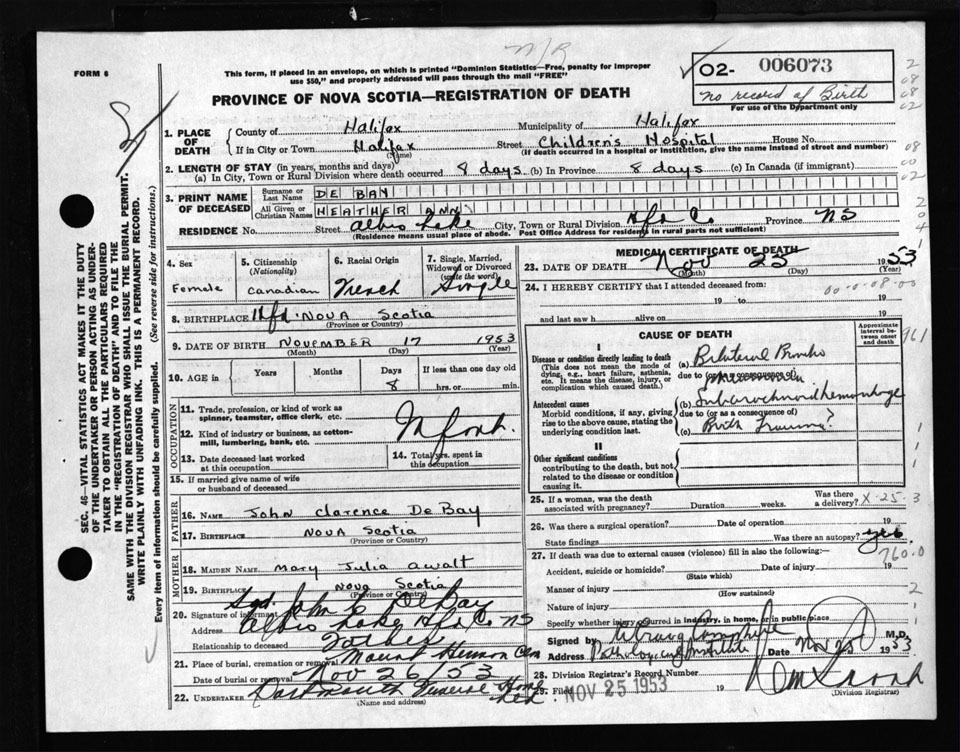 N/R
FORM 6
This form, if placed in an envelope, on which is printed "Dominion Statistics—Free, penalty for improper
use $50," and properly addressed will pass through the mail "FREE"
02- 006073
No record of Birth
For use of the Department only
PROVINCE OF NOVA SCOTIA—REGISTRATION OF DEATH
1. PLACE OF DEATH
County of Halifax Municipality of Halifax
If in City or Town Halifax Street Children's Hospital House No.
(Name) (If death occurred in a hospital or institution, give the name instead of street and number)
2. LENGTH OF STAY (in years, months and days)
(a) In City, Town or Rural Division where death occurred 8 days (b) In Province 8 days (c) In Canada (if immigrant)
3. PRINT NAME OF DECEASED
Surname or Last Name DE BAY
All Given or Christian Names HEATHER ANN
RESIDENCE No. Street Albro Lake City, Town or Rural Division Hfx Co. Province NS
(Residence means usual place of abode. Post Office Address for residents in rural parts not sufficient)
4. Sex Female
5. Citizenship (Nationality) Canadian
6. Racial Origin French
7. Single, Married, Widowed or Divorced (write the word) Single
8. BIRTHPLACE Hfx NOVA Scotia
(Province or Country)
9. DATE OF BIRTH NOVEMBER 17 1953
(Month) (Day) (Year)
10. AGE in Years Months Days 8 If less than one day old hrs. or min.
OCCUPATION
11. Trade, profession, or kind of work as spinner, teamster, office clerk, etc.
12. Kind of industry or business, as cotton-mill, lumbering, bank, etc.
Infant.
13. Date deceased last worked at this occupation
14. Total yrs. spent in this occupation
15. If married give name of wife or husband of deceased
FATHER
16. NAME John Clarence De Bay
17. BIRTHPLACE NOVA Scotia
(Province or Country)
MOTHER
18. MAIDEN NAME Mary Julia Awalt
19. BIRTHPLACE Nova Scotia
(Province or Country)
20. Signature of informant Sgd John C DeBay
Address Albro Lake Hfx Co. NS
Relationship to deceased Father
21. Place of burial, cremation or removal Mount Hermon Cem
Date of burial or removal Nov 26/53
22. UNDERTAKER Dartmouth Funeral Home Ltd.
(Name and address)
MEDICAL CERTIFICATE OF DEATH
23. DATE OF DEATH Nov 25 1953
(Month) (Day) (Year)
24. I HEREBY CERTIFY that I attended deceased from:
19 to 19
and last saw h alive on 19
00-0-08-00
CAUSE OF DEATH
Approximate interval between onset and death
I
Disease or condition directly leading to death
(This does not mean the mode of dying, e.g., heart failure, asthenia, etc. It means the disease, injury, or complication which caused death)
(a) Bilateral Broncho
due to
Antecedent causes
Morbid conditions, if any, giving rise to the above cause, stating the underlying condition last.
(b) Subarachnoid hemorrhage
due to (or as a consequence of)
(c) Birth Trauma?
II
Other significant conditions
contributing to the death, but not related to the disease or condition causing it.
25. If a woman, was the death associated with pregnancy? Duration weeks. Was there a delivery?
X-25-3
26. Was there a surgical operation? Date of operation 19
State findings Was there an autopsy? yes.
27. If death was due to external causes (violence) fill in also the following:—
760.0
Accident, suicide or homicide? Date of injury 19
(State which)
Manner of injury
(How sustained)
Nature of injury
Specify whether injury occurred in industry, in home, or in public place
Signed by M.D.
Address Pathological Institute Date Nov 25 1953
28. Division Registrar's Record Number
29. Filed NOV 25 1953 19
(Division Registrar)
SEC. 46—VITAL STATISTICS ACT MAKES IT THE DUTY
OF THE UNDERTAKER OR PERSON ACTING AS UNDER-
TAKER TO OBTAIN ALL THE PARTICULARS REQUIRED
IN THE "REGISTRATION OF DEATH" AND TO FILE THE
SAME WITH THE DIVISION REGISTRAR WHO SHALL ISSUE THE BURIAL PERMIT.
WRITE PLAINLY WITH UNFADING INK. THIS IS A PERMANENT RECORD.
Every item of information should be carefully supplied. (See reverse side for instructions.)